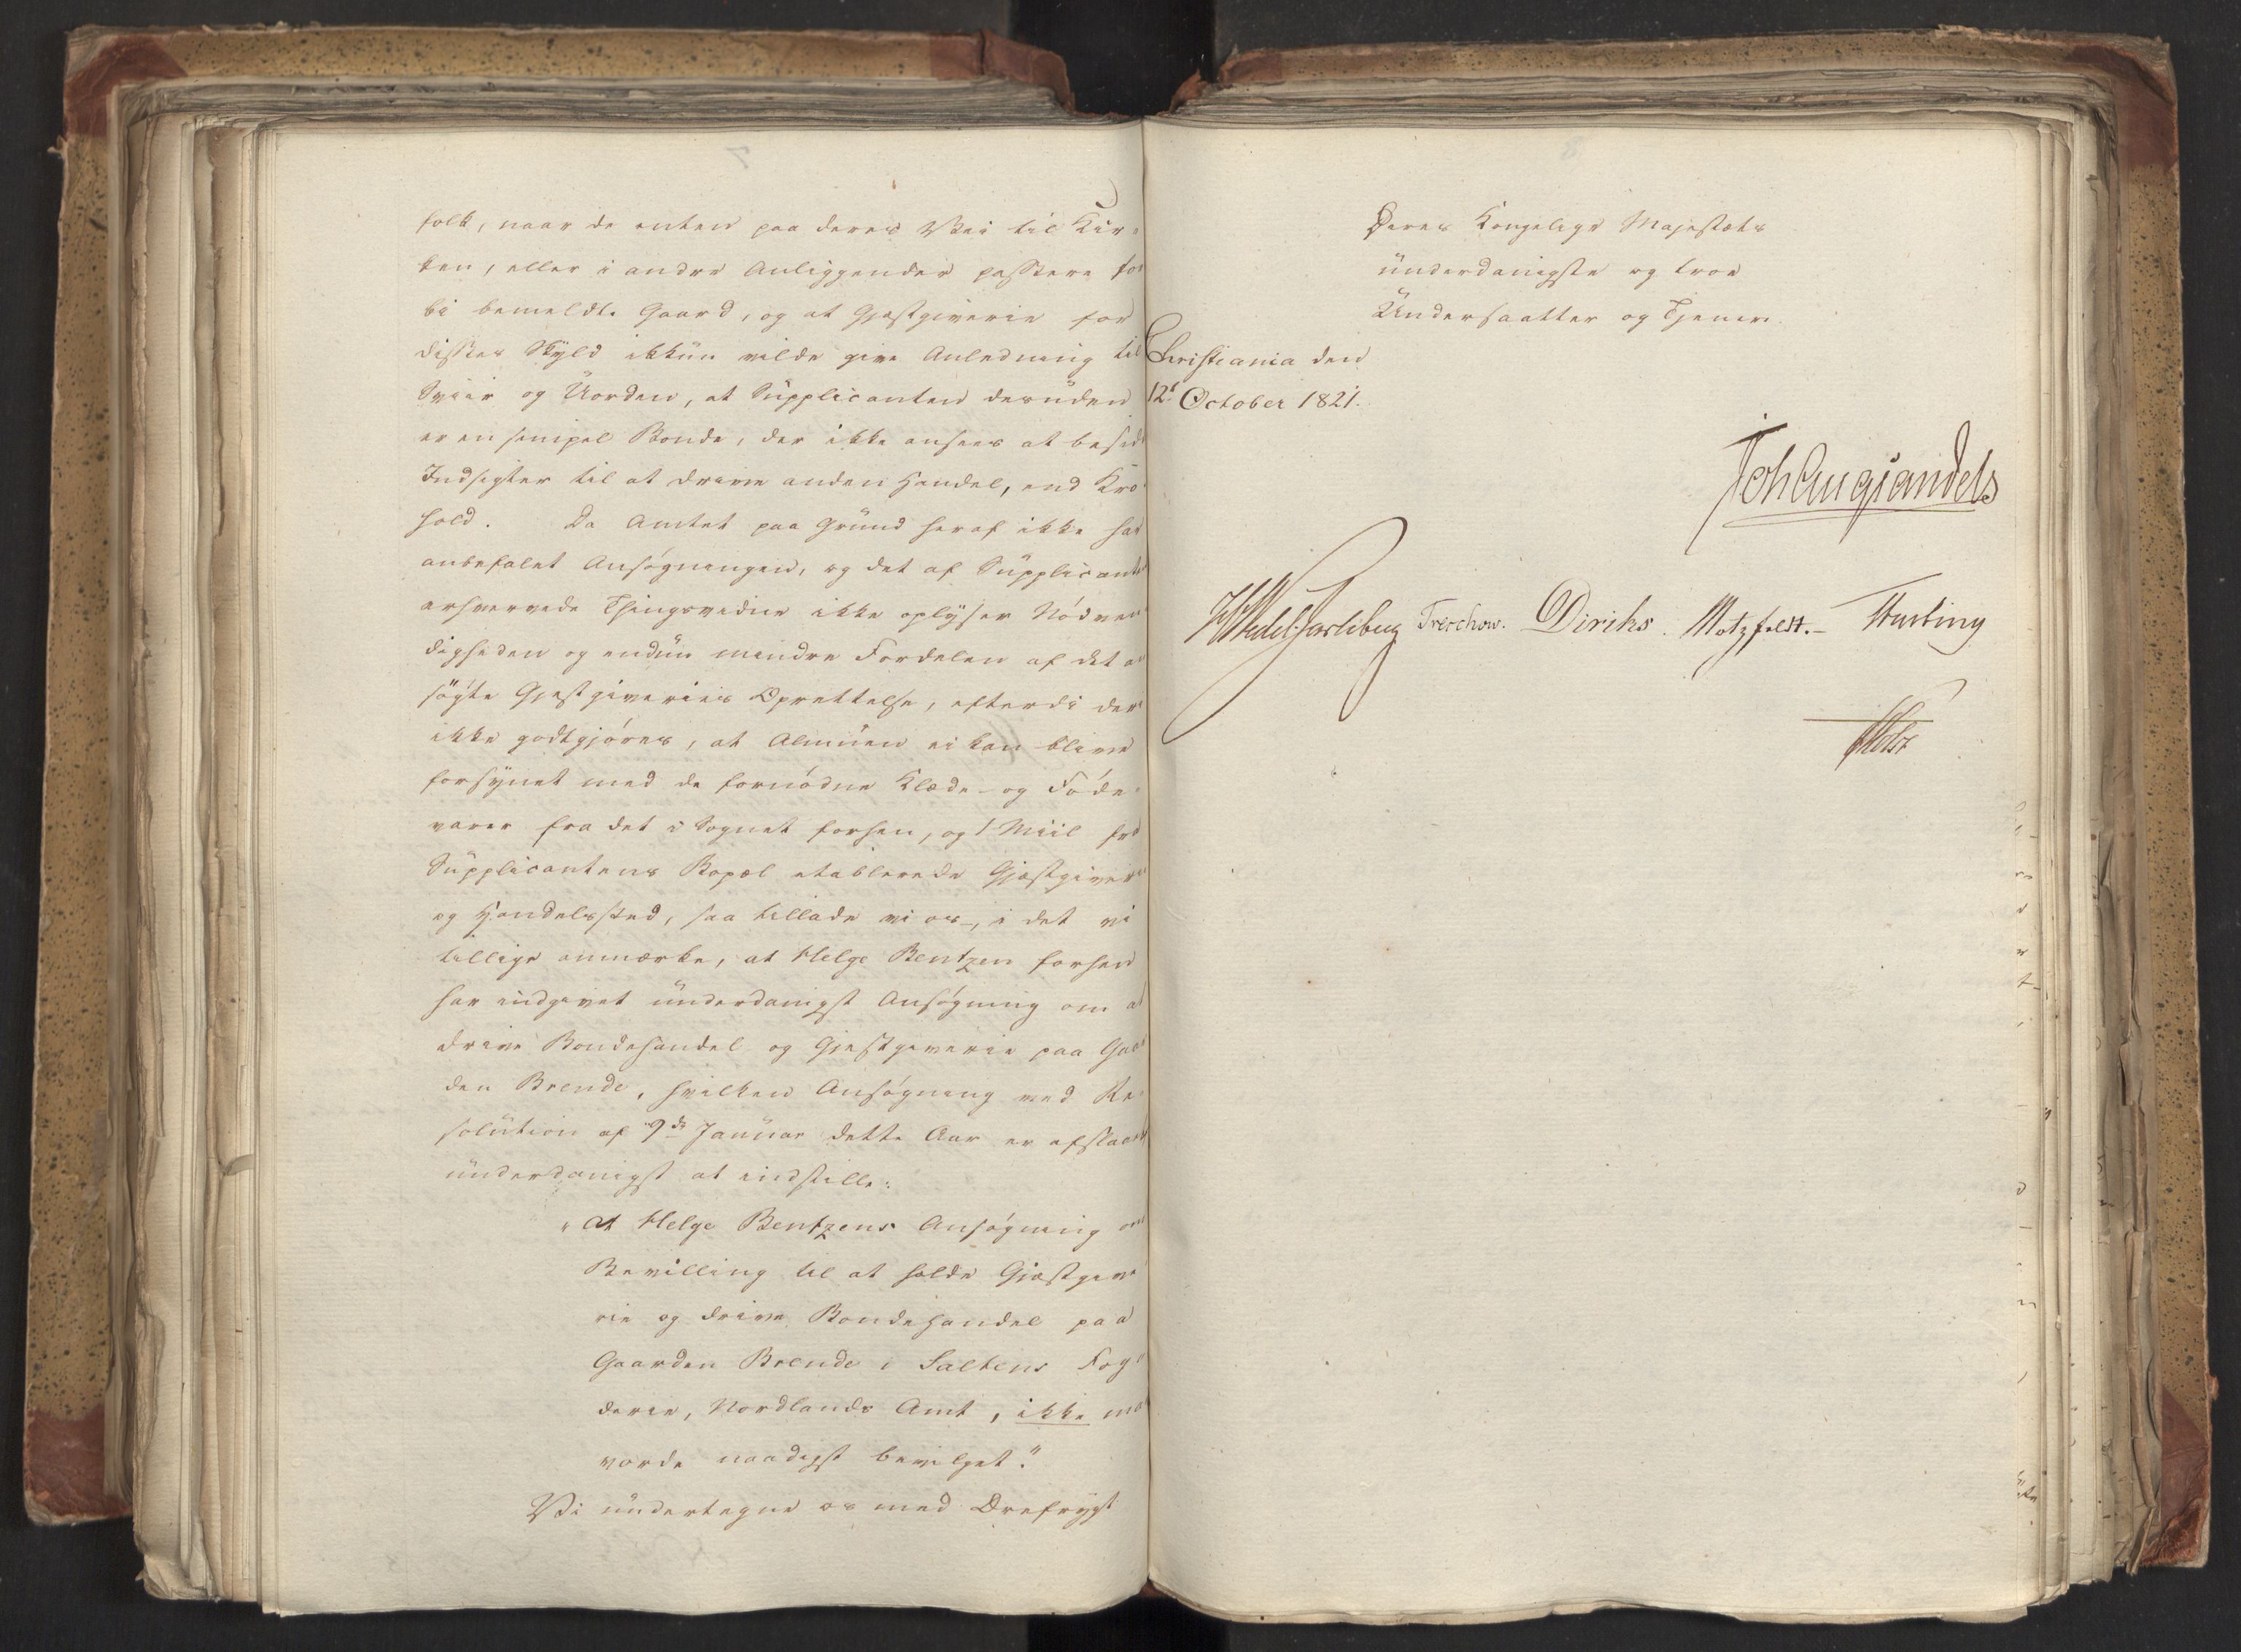 folk, naar de enten paa deres Vei til Kir-
ken, eller i andre Anliggender passere for
bi bemeldte Gaard, og at Gjestgiverie for
disses Skyld ikkun vilde give Anledning til
Sviir og Uorden, at Supplicanten desuden
er en simpel Bonde, der ikke ansees at besidde
Indsigter til at drive anden Handel, end Kro-
hold. Da Amtet paa Grund heraf ikke har
anbefalet Ansøgningen, og det af Supplicanten
erhvervede Thingsvidne ikke oplyser Nødven-
digheden og endnu mindre Fordelen af det an
søgte Gjestgiveries Oprettelse, efterdi der
ikke godtgjøres, at Almuen ei kan blive
forsynet med de fornødne Klæde- og Føde-
varer fra det i Sognet forhen, og 1 Miil fra
Supplicantens Bopæl etablerede Gjæstgiverie
og Handelssted, saa tillade vi os, i det vi
tillige anmærke, at Helge Bentzen forhen
har indgivet underdanigst Ansøgning om at
drive Bondehandel og Gjestgiverie paa Gaar
den Brende, hvilken Ansøgning ved Re-
solution af 9de Januar dette Aar er afslaaet
underdanigst at indstille:
"At Helge Bentzens Ansøgning om
Bevilling til at holde Gjæstgive
rie og drive Bondehandel paa
Gaarden Brende i Saltens Fog-
derie, Nordlands Amt, ikke maa
vorde naadigst bevilget."
Vi undertegne os med Ærefrygt
Deres Kongelige Majestæts
underdanigste og troe
Undersaatter og Tjenere.
Christiania den
12t October 1821.
Joh Aug Sandels
HWedel Jarlsberg Treschow. Diriks. Motzfeldt.- Hasting
Holst